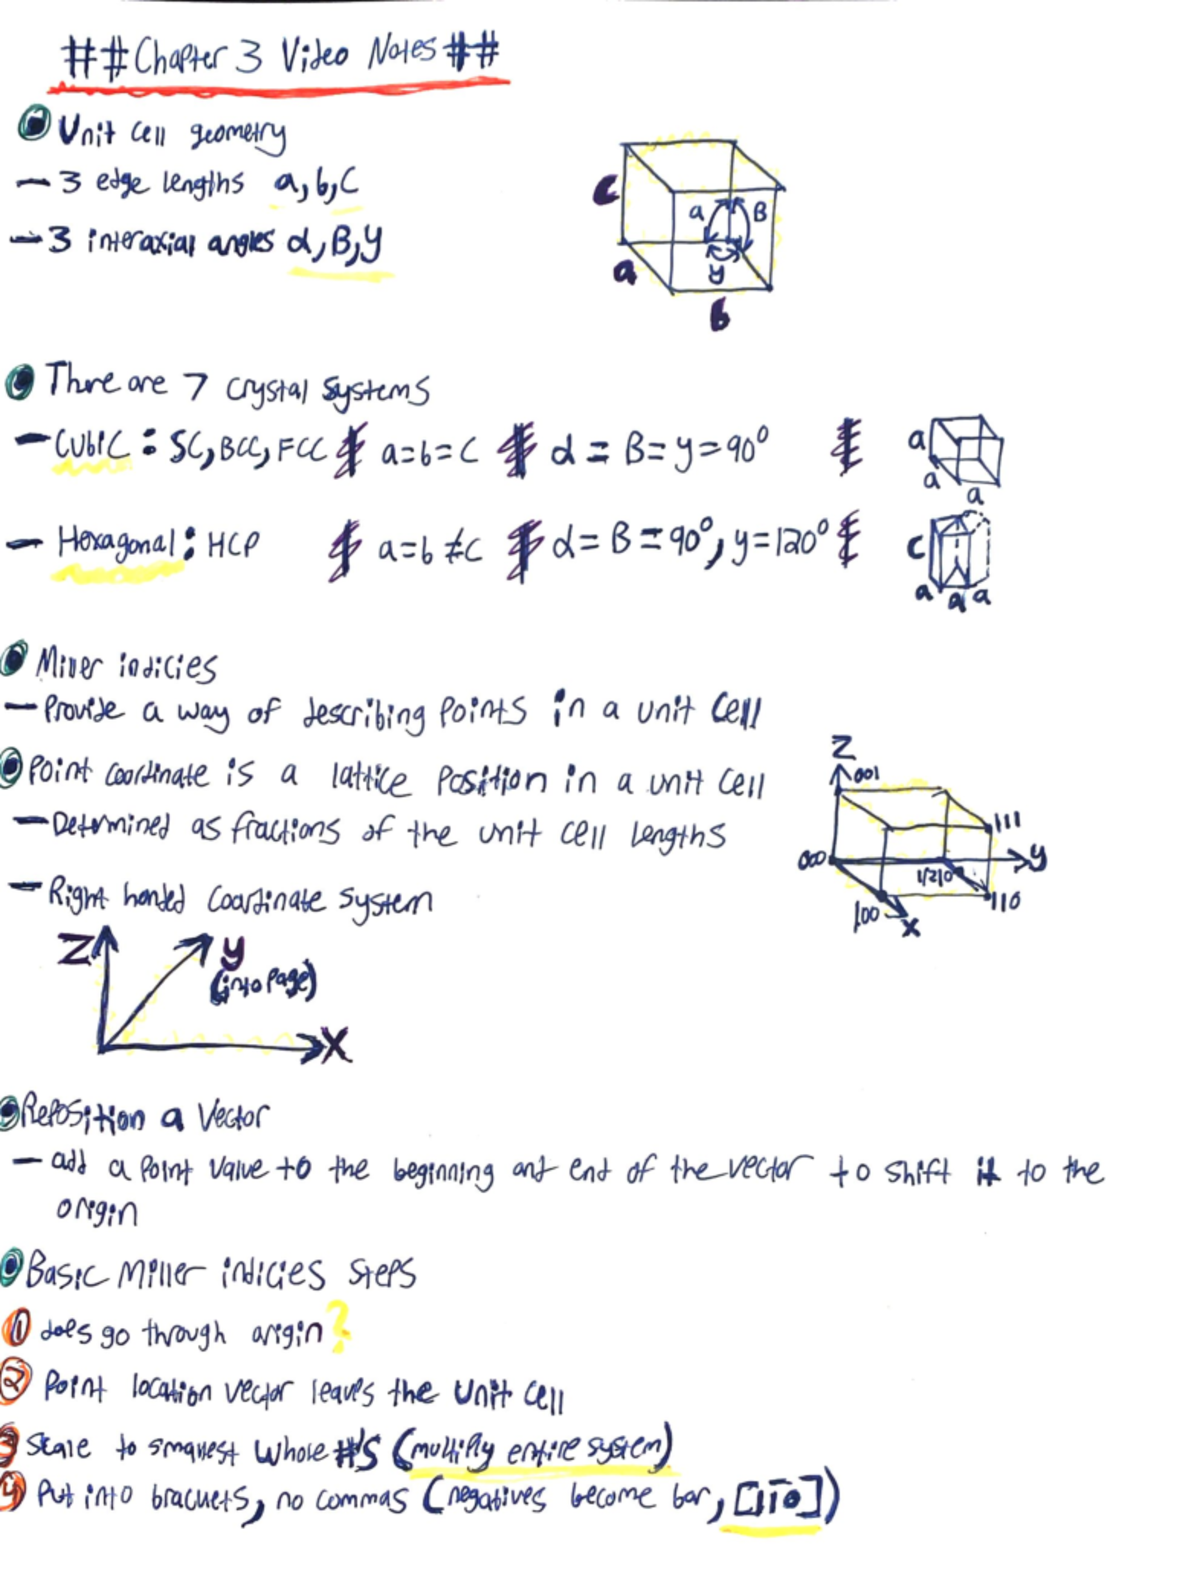 ##Chapter 3 Video Notes##
Unit cell geometry
- 3 edge lengths a,b,c
- 3 interaxial angles α,B,y
c
a
b
a B
y
There are 7 crystal systems
- Cubic: SC, BCC, FCC a=b=c α = B= y= 90°
a
a
a
- Hexagonal: HCP a=b≠c α= B = 90°, y=120°
c
a a a
Miller indicies
- Provide a way of describing points in a unit cell
Point coordinate is a lattice position in a unit cell
- Determined as fractions of the unit cell lengths
- Right handed coordinate system
Z
001
111
000
y
1/210
110
100
X
Z
y
(into page)
X
Reposition a vector
- add a point value to the beginning and end of the vector to shift it to the
origin
Basic Miller indicies steps
1 does go through origin?
2 Point location vector leaves the unit cell
3 Scale to smallest whole #'s (multiply entire system)
4 Put into brackets, no commas (negatives become bar, [11̅0])